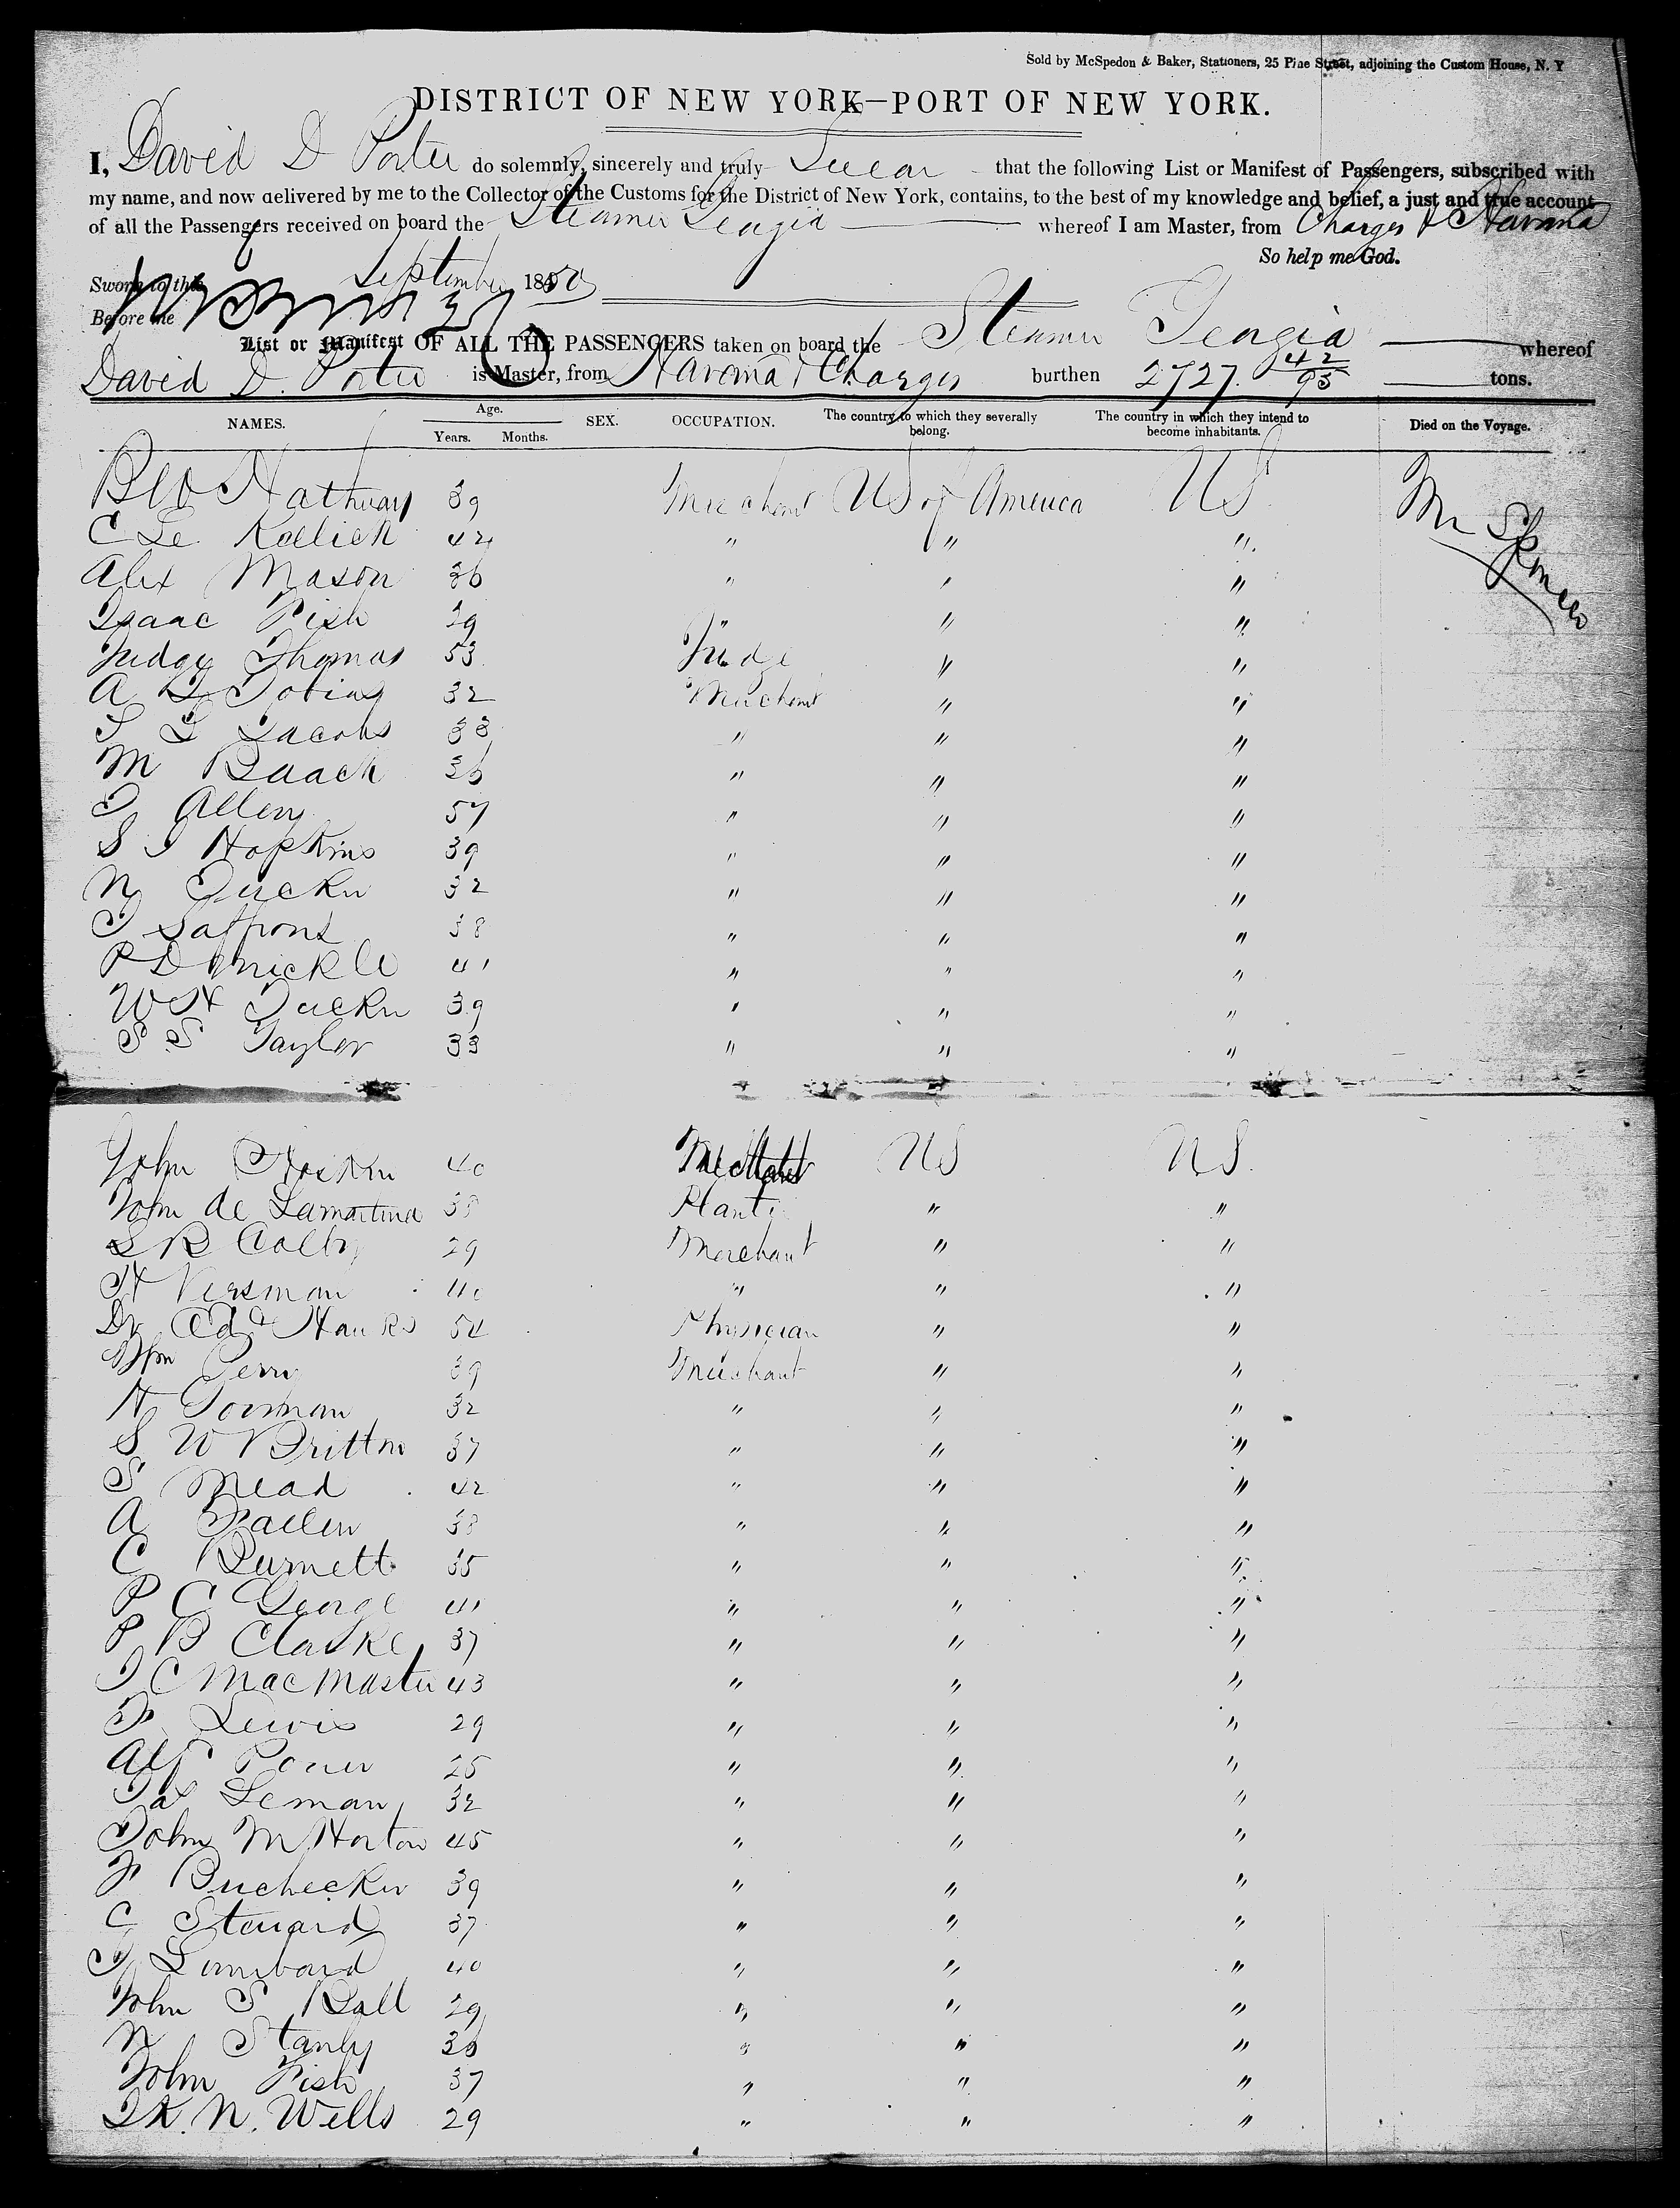 Sold by McSpedon & Baker, Stationers, 25 Pine Street, adjoining the Custom House, N. Y
DISTRICT OF NEW YORK—PORT OF NEW YORK.
I, David D Porter do solemnly, sincerely and truly Swear that the following List or Manifest of Passengers, subscribed with
my name, and now delivered by me to the Collector of the Customs for the District of New York, contains, to the best of my knowledge and belief, a just and true account
of all the Passengers received on board the Steamer Georgia whereof I am Master, from Chagres & Havana
So help me God.
Sworn to this September 1850
Before me
List or Manifest OF ALL THE PASSENGERS taken on board the Steamer Georgia whereof
David D. Porter is Master, from Havana & Chagres burthen 2727. 42/95 tons.
NAMES. Age. Years. Months. SEX. OCCUPATION. The country to which they severally belong. The country in which they intend to become inhabitants. Died on the Voyage.
Hathway 39 Merchant US of America US
C Le 42 " " "
Alex Mason 36 " " "
Isaac Fish 29 " " "
Judge Thomas 53 Judge " "
A Tobias 32 Merchant " "
S L Jacobs 38 " " "
M Baach 36 " " "
J Allen 57 " " "
S J Hopkins 39 " " "
N Tucker 32 " " "
J Saffrons 38 " " "
P D Mickle 41 " " "
W H Tucker 39 " " "
S S Taylor 33 " " "
John 40 US US
John de Lamartine 38 Planter " "
S B Colby 29 Merchant " "
H Versman 40 " " "
Dr Edd Hanks 54 Physician " "
Wm Perry 39 Merchant " "
H 32 " " "
S W Britton 37 " " "
S Mead 42 " " "
A Fallen 38 " " "
C Burnett 35 " " "
P C George 41 " " "
P B Clarke 37 " " "
J C MacMaster 43 " " "
F Lewis 29 " " "
Alf 25 " " "
Jas Leman 32 " " "
John M Horton 45 " " "
F Buchecker 39 " " "
C Steuard 37 " " "
J Lombard 40 " " "
John S Ball 29 " " "
N Stanly 36 " " "
John Fish 37 " " "
N. Wells 29 " " "